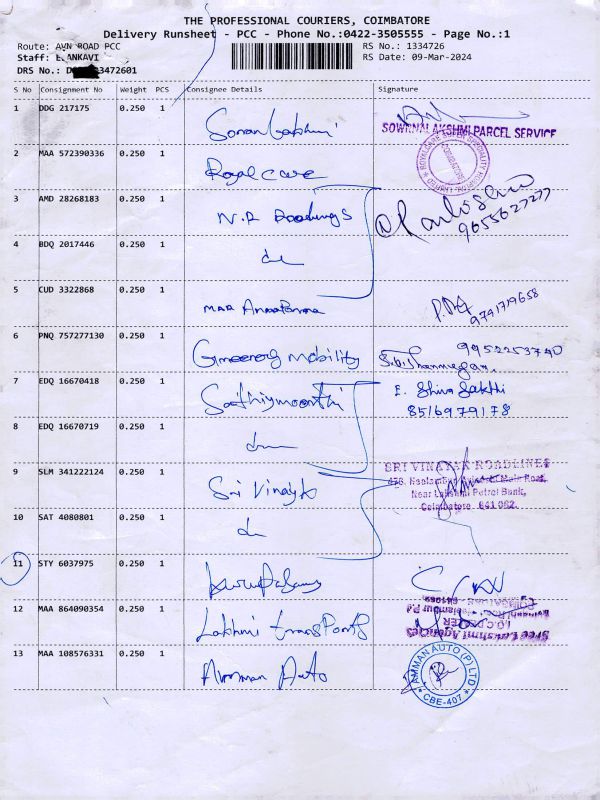 THE PROFESSIONAL COURIERS, COIMBATORE
Delivery Runsheet - PCC - Phone No.:0422-3505555 - Page No.:1
Route: AVN ROAD PCC
RS No.: 1334726
Staff: E.ANKAVI
RS Date: 09-Mar-2024
DRS No.: 3472601
S No Consignment No Weight PCS Consignee Details Signature
1 DDG 217175 0.250 1 Sornalakshmi
SOWRNALAKSHMI PARCEL SERVICE
2 MAA 572390336 0.250 1 Royal care
ROYALCARE SUPER SPECIALITY HOSPITAL LIMITED COIMBATORE
3 AMD 28268183 0.250 1 N.R
9655627277
4 BDQ 2017446 0.250 1
5 CUD 3322868 0.250 1 MAA Annapoorna
9791719658
6 PNQ 757277130 0.250 1 Greenerg mobility
9952253740
7 EDQ 16670418 0.250 1 Sathiymoorthi
E. Shiva Sakthi
8516979178
8 EDQ 16670719 0.250 1
9 SLM 341222124 0.250 1 Sri Vinayk
SRI VINAYAK ROADLINES
Main Road,
Near Lakshmi Petrol Bunk,
Coimbatore 641 062.
10 SAT 4080801 0.250 1
11 STY 6037975 0.250 1
12 MAA 864090354 0.250 1 Lakhmi transPorts
Sree Lakshmi Agencies
I.O.C DEALER
13 MAA 108576331 0.250 1 Amman Auto
AMMAN AUTO (P) LTD CBE-407